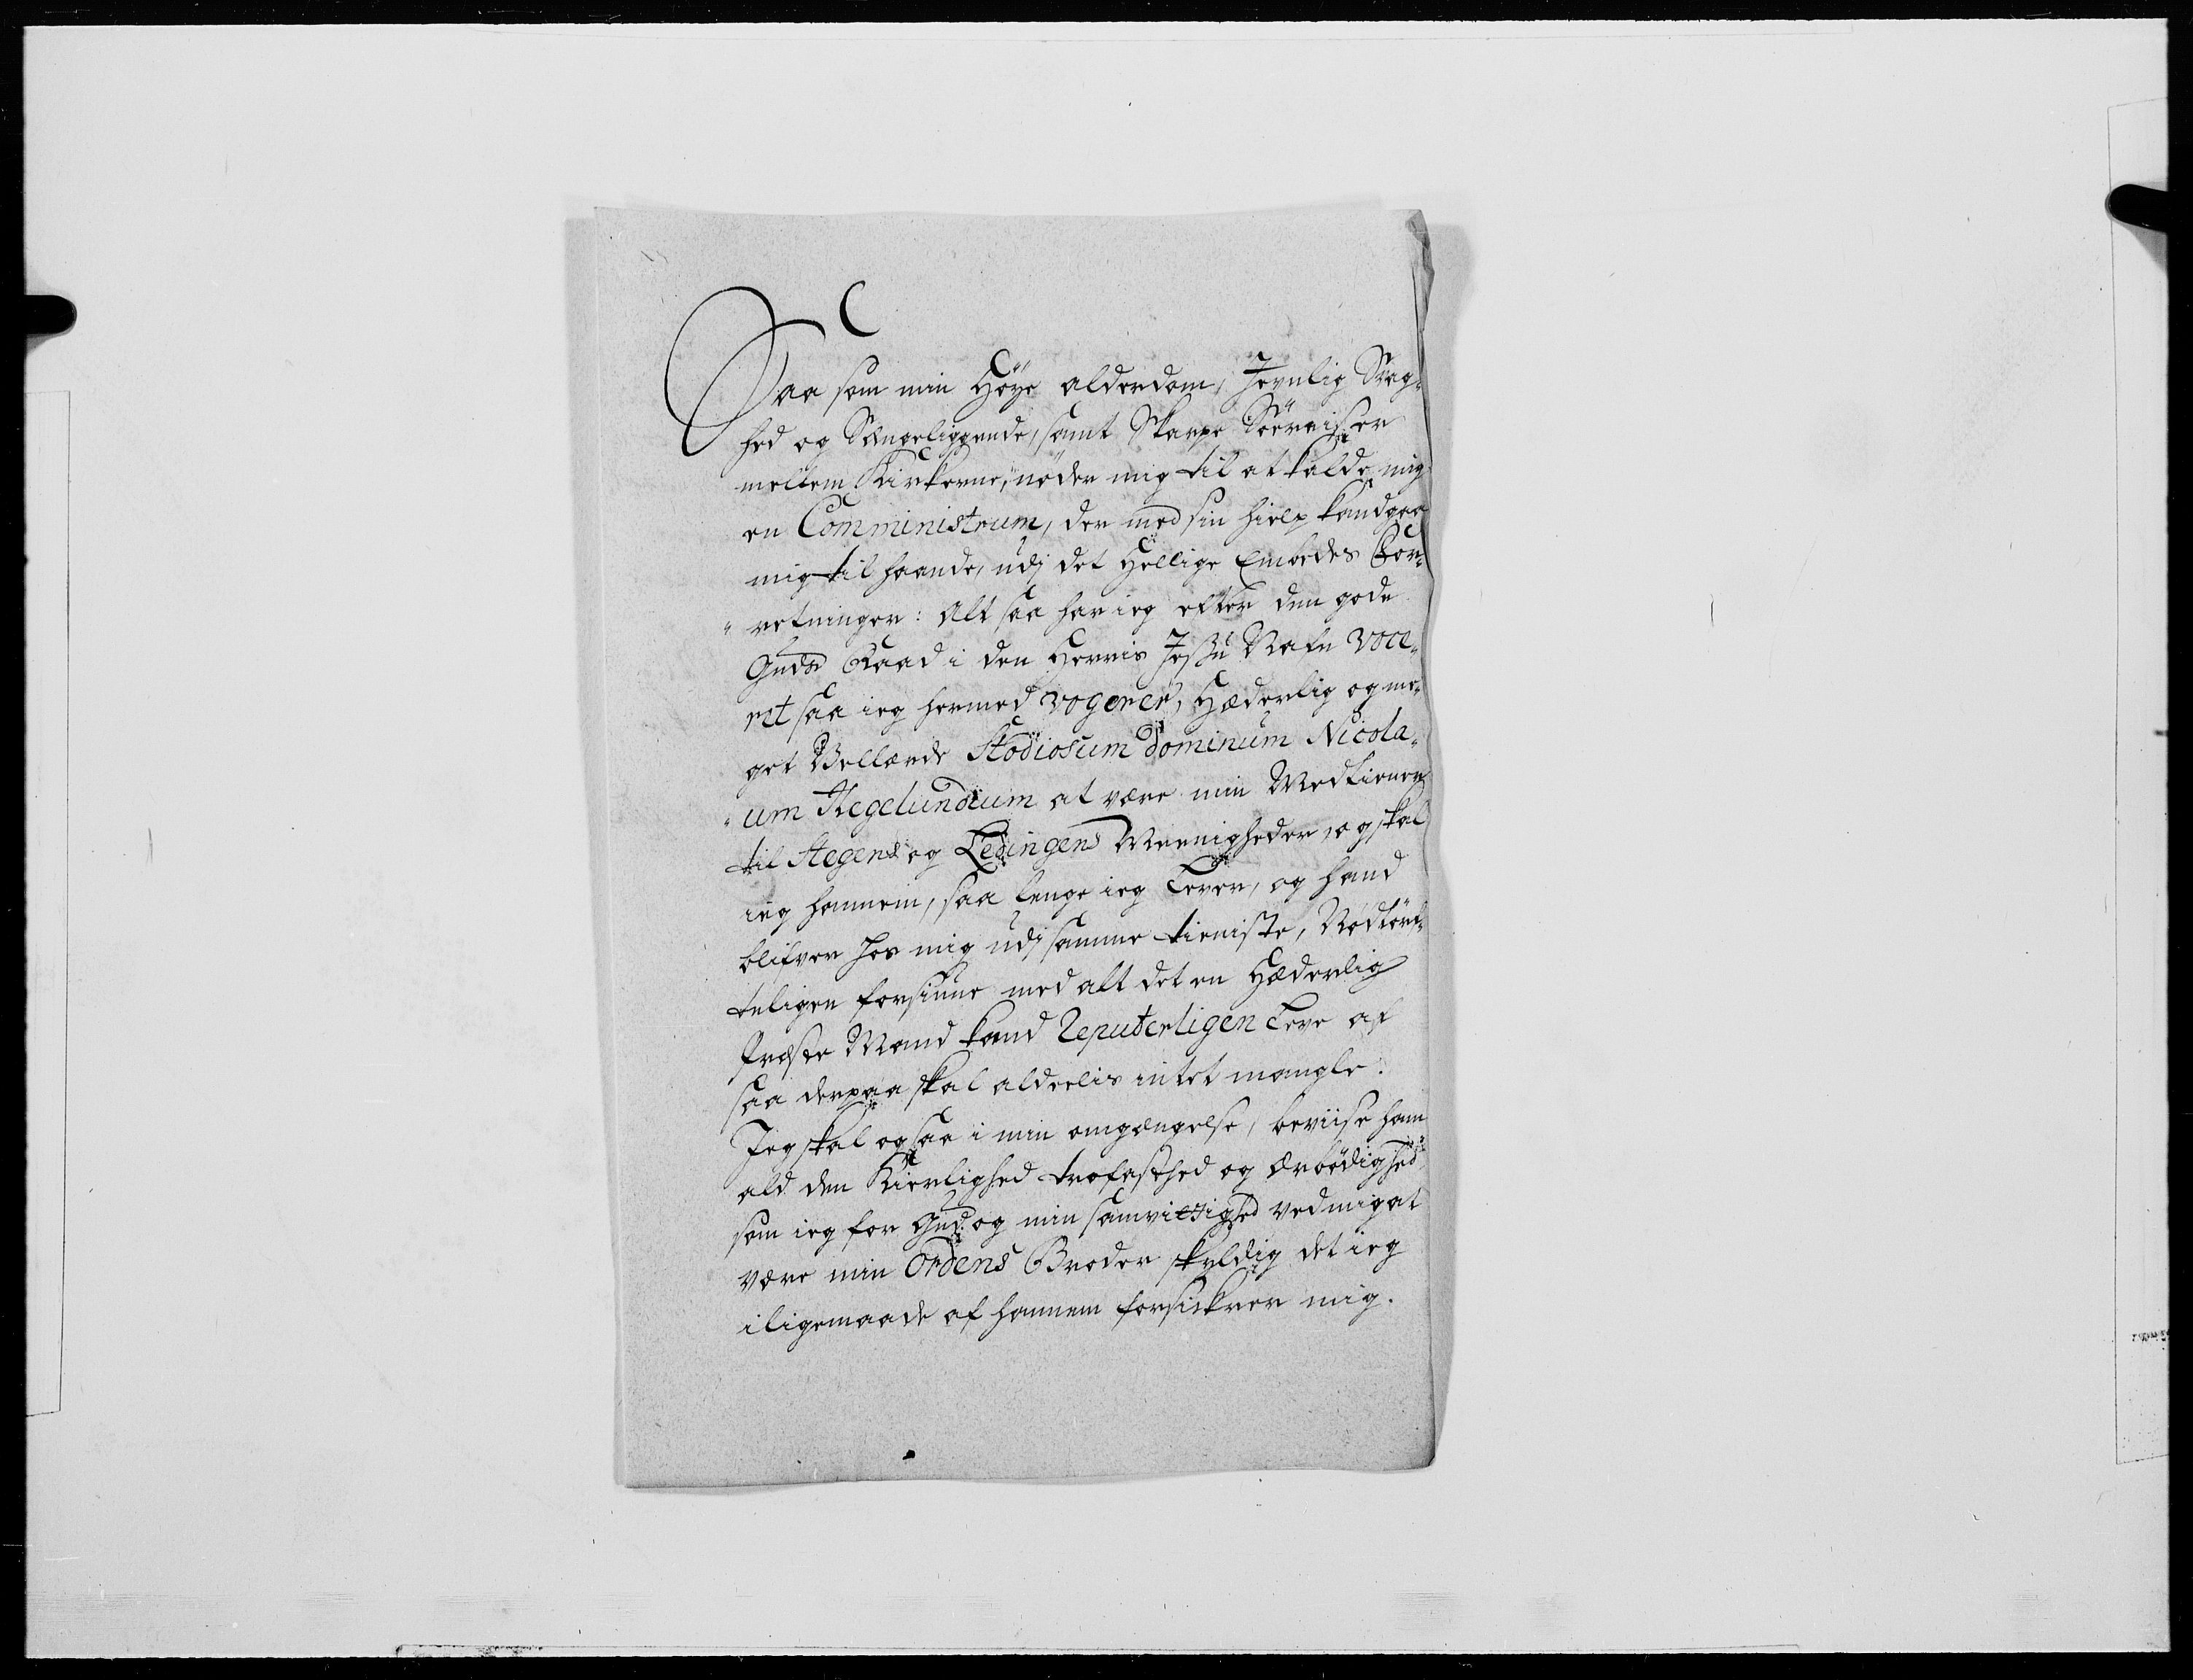 Saa som min Høye alderdom, Jevnlig Svag-
hed og Sængeliggende, samt Skarpe Søereiser
mellem Kirkerne, nøder mig til at kalde mig
en Comministrum, der med sin hielp kand gaa
mig til haande, udj det Hellige Embedes For-
retninger: Alt saa har ieg efter den gode
Guds Raad i den Herris Jesu Nafn voce-
ret saa ieg hermed vogerer, Hæderlig og me-
get Vellærde Stodiosum dominum Nicola-
um Hegelundium at være min Medtiener
til Stegens og Ledingens Meenigheder, og skal
ieg hannem, saa lenge ieg Lever, og hand
blifver hos mig udj samme tieniste, Nødtørf-
teligen forsiune med alt det en Hæderlig
Præste Mand kand Reputerligen Leve af
saa derpaa skal alderlis intet mangle.
Jeg skal og saa i min omgængelse, beviise ham
ald den Kierlighed trofasthed og Ærbødighed
som ieg for Gud og min samvittighed ved mig at
være min Ordens Broder skyldig det ieg
iligemaade af hannem forsickrer mig.